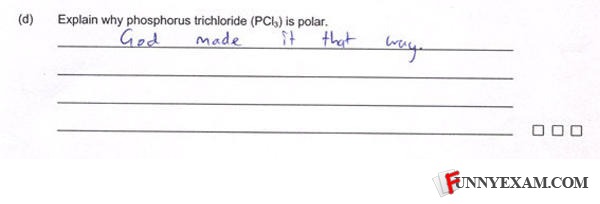 (d) Explain why phosphorus trichloride (PCl₃) is polar.
God made it that way.
FUNNYEXAM.COM